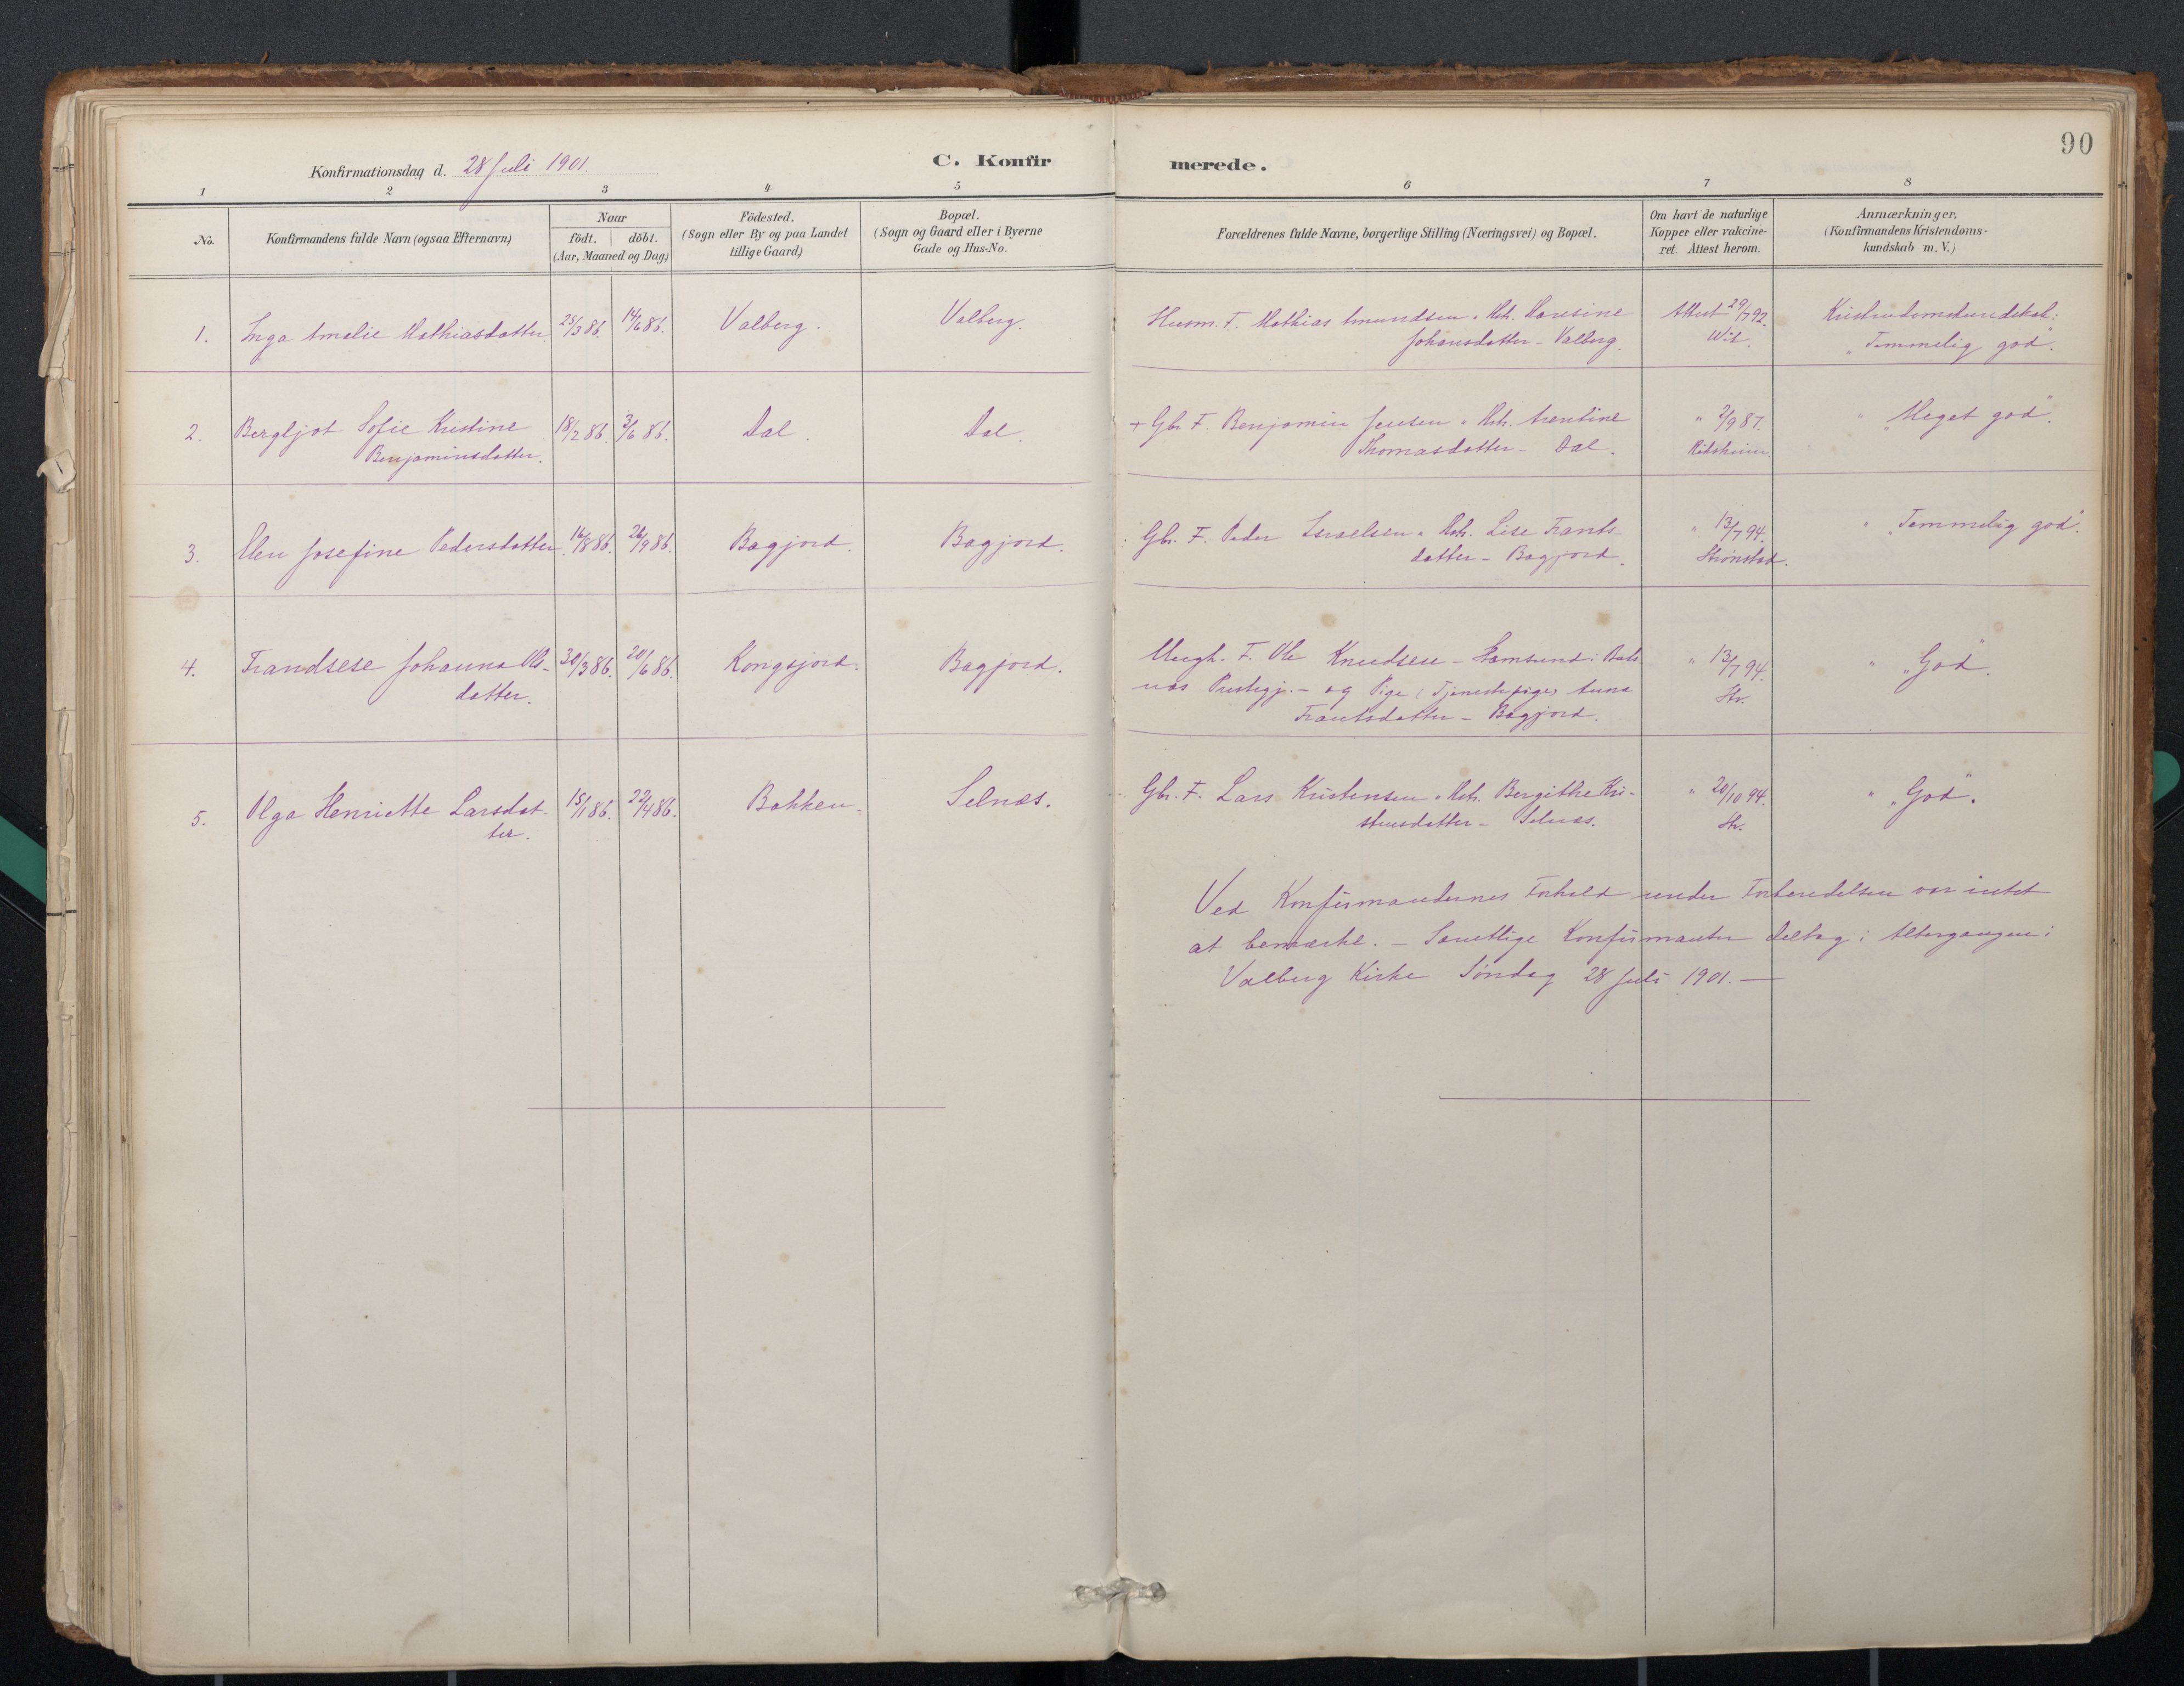 90
Konfirmationsdag d. 28 Juli 1901.
C. Konfirmerede.
1 2 3 4 5 6 7 8
No.
Konfirmandens fulde Navn (ogsaa Efternavn)
Naar
födt. | döbt.
(Aar, Maaned og Dag)
Födested.
(Sogn eller By og paa Landet
tillige Gaard)
Bopæl.
(Sogn og Gaard eller i Byerne
Gade og Hus-No.
Forældrenes fulde Navne, borgerlige Stilling (Næringsvei) og Bopæl.
Om havt de naturlige
Kopper eller vakcine-
ret. Attest herom.
Anmærkninger.
(Konfirmandens Kristendoms-
kundskab m. V.)
1. Inga Amalie Mathiasdatter 25/3 86. 14/6 86. Valberg. Valberg. Husm. F. Mathias Amundsen & Hst. Hansine Attest 29/7 92. Kristendomskundskab:
Johansdatter - Valberg. "Temmelig god".
2. Bergljot Sofie Kristine 18/2 86. 3/6 86. Dal. Dal. + Gbr. F. Benjamin Jensen & Hst. Arentine " 2/9 87. " "Meget god".
Benjaminsdatter. Thomasdatter - Dal.
3. Elen Josefine Pedersdatter. 16/8 86. 26/9 86. Bagjord. Bagjord. Gbr. F. Peder Israelsen & Hst. Lise Frants- " 13/7 94. " "Temmelig god".
datter - Bagjord. Strønstad.
4. Frandsese Johanna Ols- 30/3 86. 20/6 86. Kongsjord. Bagjord. Ungk. F. Ole Knudsen - Stamsund i Buks- " 13/7 94. " "God".
datter. næs Prestegj. - og Pige (Tjenestepige) Anna Str.
Frantsdatter - Bagjord.
5. Olga Henriette Larsdat- 15/1 86. 22/4 86. Bakken. Selnæs. Gbr. F. Lars Kristensen & Hst. Bergithe Kri- " 20/10 94. " "God".
ter. stensdatter - Selnæs. Str.
Ved Konfirmandernes Forhold under Forberedelsen var intet
at bemærke. - Samtlige Konfirmanter deltog i Altergangen i
Valberg Kirke Søndag 28 Juli 1901. -